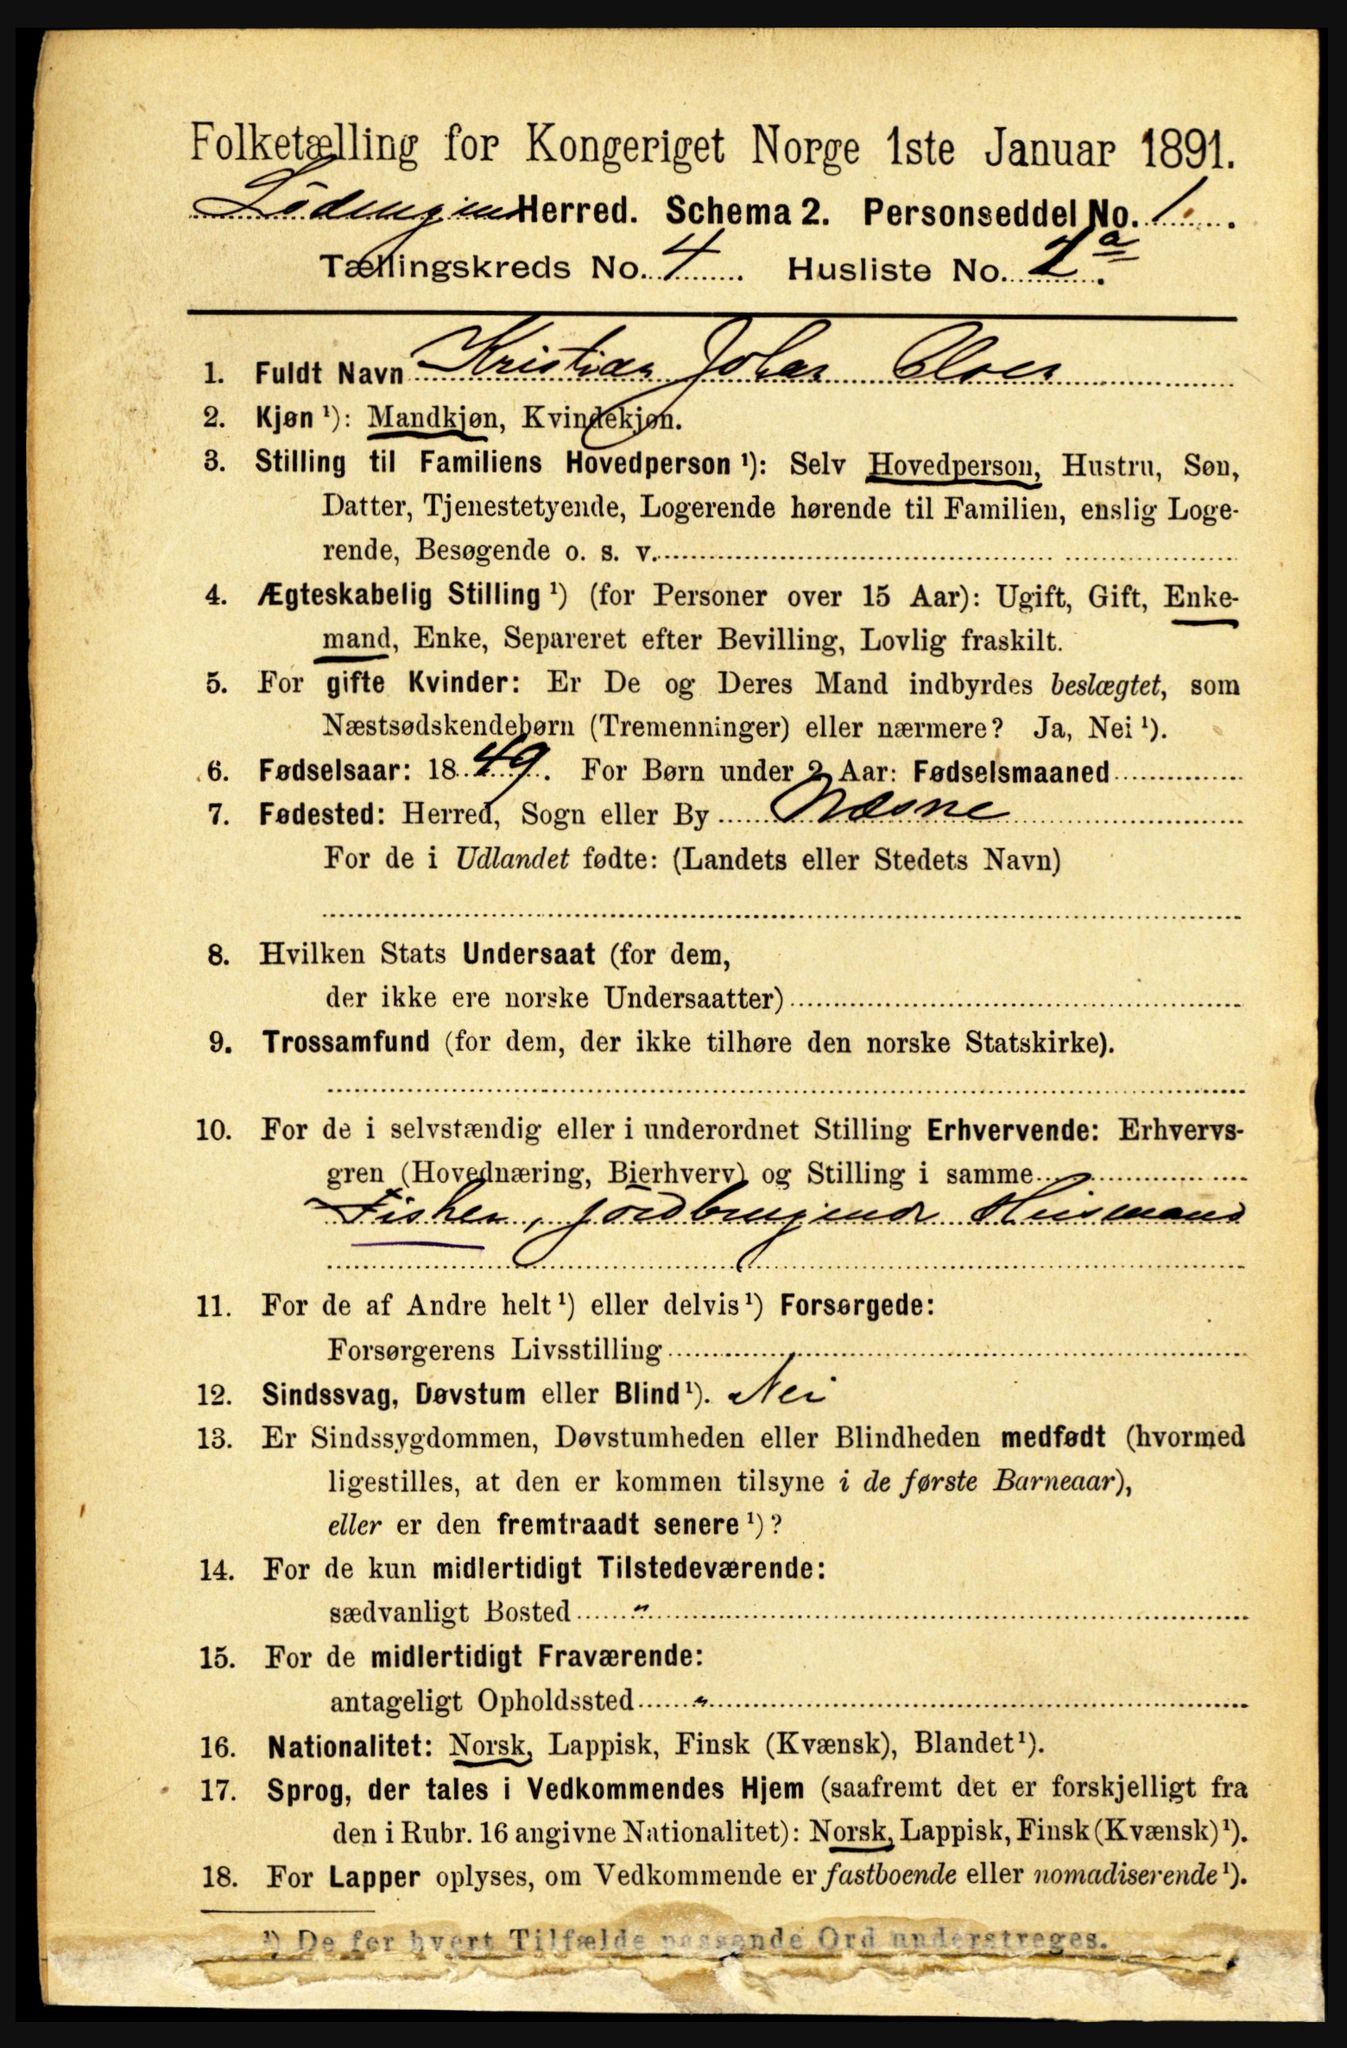 Folketælling for Kongeriget Norge 1ste Januar 1891.
Lødingens Herred. Schema 2. Personseddel No. 1.
Tællingskreds No. 4. Husliste No. 2a.
1. Fuldt Navn Kristian Johan Olsen
2. Kjøn ¹): Mandkjøn, Kvindekjøn.
3. Stilling til Familiens Hovedperson ¹): Selv Hovedperson, Hustru, Søn,
Datter, Tjenestetyende, Logerende hørende til Familien, enslig Loge-
rende, Besøgende o. s. v.
4. Ægteskabelig Stilling ¹) (for Personer over 15 Aar): Ugift, Gift, Enke-
mand, Enke, Separeret efter Bevilling, Lovlig fraskilt.
5. For gifte Kvinder: Er De og Deres Mand indbyrdes beslægtet, som
Næstsødskendebørn (Tremenninger) eller nærmere? Ja, Nei ¹).
6. Fødselsaar: 1849. For Børn under 2 Aar: Fødselsmaaned
7. Fødested: Herred, Sogn eller By Næsne
For de i Udlandet fødte: (Landets eller Stedets Navn)
8. Hvilken Stats Undersaat (for dem,
der ikke ere norske Undersaatter)
9. Trossamfund (for dem, der ikke tilhøre den norske Statskirke).
10. For de i selvstændig eller i underordnet Stilling Erhvervende: Erhvervs-
gren (Hovednæring, Bierhverv) og Stilling i samme
Fisker, jordbrugende Husmand
11. For de af Andre helt ¹) eller delvis ¹) Forsørgede:
Forsørgerens Livsstilling
12. Sindssvag, Døvstum eller Blind ¹). Nei
13. Er Sindssygdommen, Døvstumheden eller Blindheden medfødt (hvormed
ligestilles, at den er kommen tilsyne i de første Barneaar),
eller er den fremtraadt senere ¹)?
14. For de kun midlertidigt Tilstedeværende:
sædvanligt Bosted "
15. For de midlertidigt Fraværende:
antageligt Opholdssted "
16. Nationalitet: Norsk, Lappisk, Finsk (Kvænsk), Blandet ¹).
17. Sprog, der tales i Vedkommendes Hjem (saafremt det er forskjelligt fra
den i Rubr. 16 angivne Nationalitet): Norsk, Lappisk, Finsk (Kvænsk) ¹).
18. For Lapper oplyses, om Vedkommende er fastboende eller nomadiserende ¹).
¹) De for hvert Tilfælde passende Ord understreges.